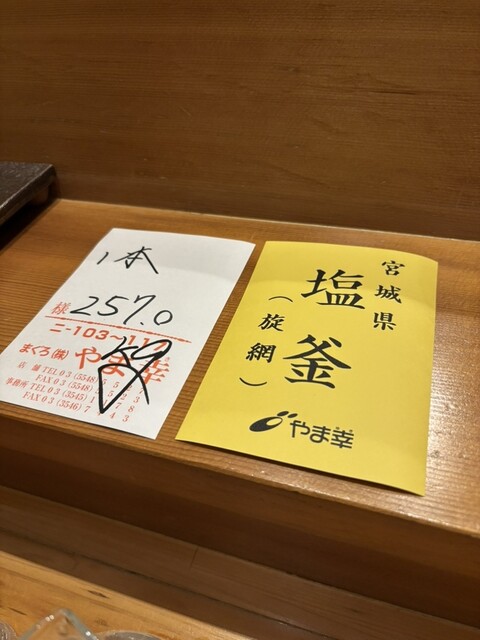 1本
様 257.0
ニ-103-11
まぐろ(株)やま幸
店舗 TEL 03 (5548)
FAX 03 (5548)
事務所 TEL 03 (3545)
FAX 03 (3546)
宮城県
塩釜
(旋網)
やま幸